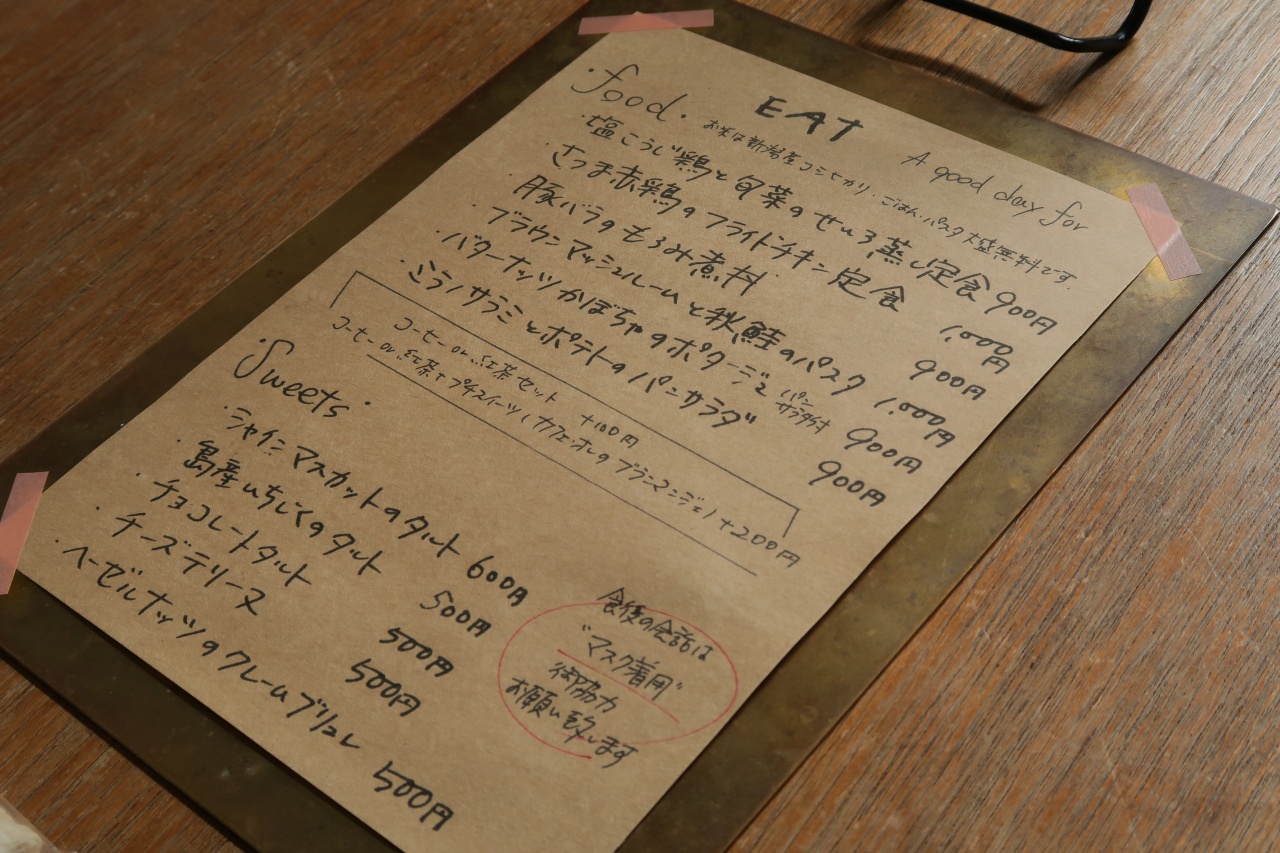 EAT
A good day for
・food・
お米は新潟産コシヒカリ・ごはん、パスタ大盛無料です。
・塩こうじ鶏と旬菜のせいろ蒸し定食 900円
・さつま赤鶏のフライドチキン定食 1,000円
・豚バラのもろみ煮料 900円
・ブラウンマッシュルームと秋鮭のパスタ 1,000円
・バターナッツかぼちゃのポタージュ パンサラダ付 900円
・ミラノサラミとポテトのパンサラダ 900円
コーヒー or 紅茶セット +100円
コーヒー or 紅茶+プチスイーツ(カフェオレのブランマンジェ) +200円
Sweets・
・シャインマスカットのタルト 600円
・島産いちじくのタルト 500円
・チョコレートタルト 500円
・チーズテリーヌ 500円
・ヘーゼルナッツのクレームブリュレ 500円
食後の会話は
"マスク着用"
御協力
お願い致します